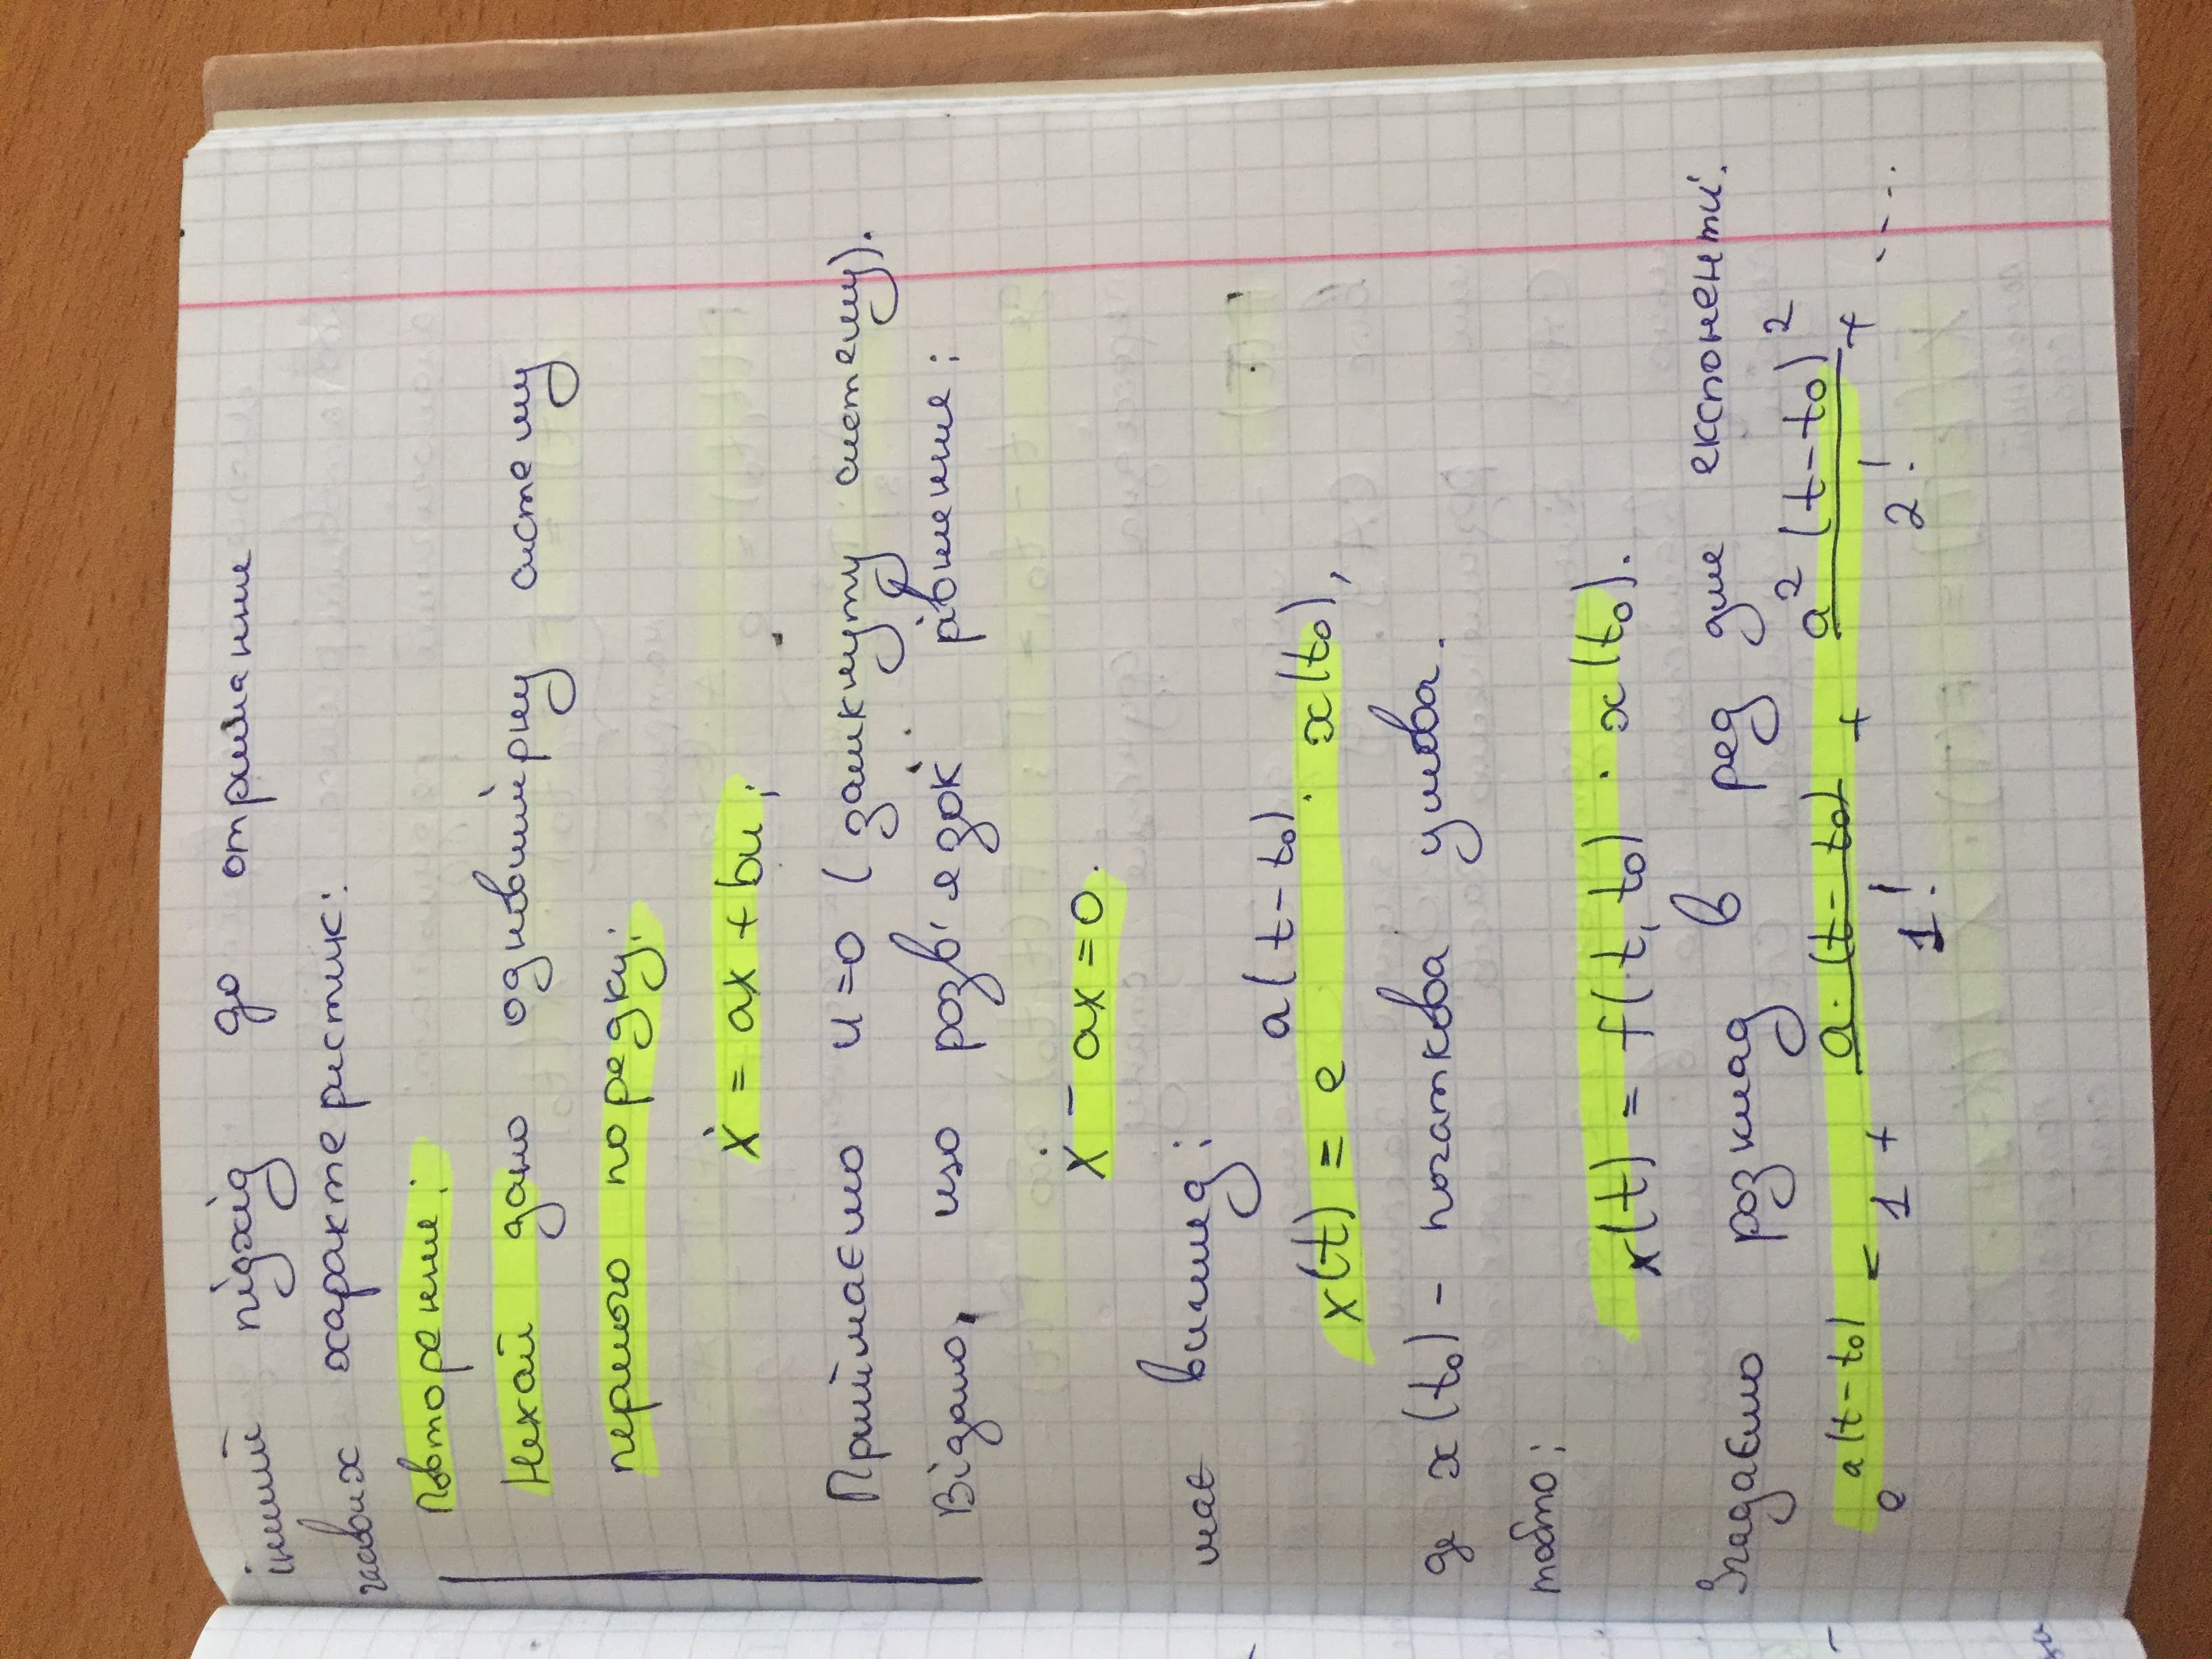 інший підхід до отримання
часових характеристик:
Повторення:
Нехай дано одновимірну систему
першого порядку:
ẋ = ax + bu;
Приймаємо u=0 (замкнуту систему).
Відомо, що розв'язок рівняння:
ẋ - ax = 0.
має вигляд:
x(t) = e^{a(t-t₀)} · x(t₀),
де x(t₀) - початкова умова.
тобто:
x(t) = f(t, t₀) · x(t₀).
Згадаємо розклад в ряд для експоненти:
e^{a(t-t₀)} = 1 + a·(t-t₀)/1! + a²(t-t₀)²/2! + ....